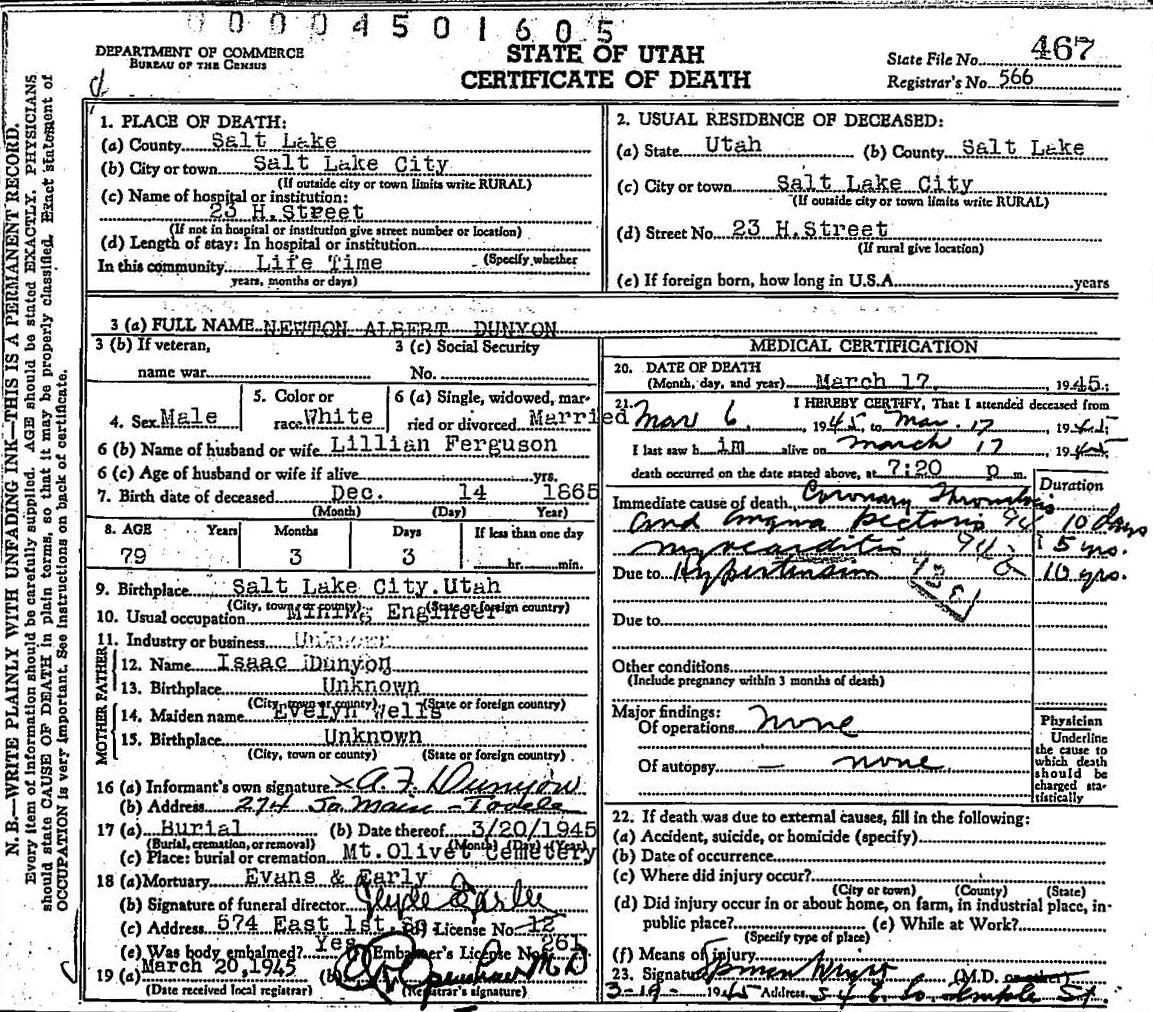 00004501605
DEPARTMENT OF COMMERCE
BUREAU OF THE CENSUS
STATE OF UTAH
CERTIFICATE OF DEATH
State File No. 467
Registrar's No. 566
N. B.—WRITE PLAINLY WITH UNFADING INK—THIS IS A PERMANENT RECORD.
Every item of information should be carefully supplied. AGE should be stated EXACTLY. PHYSICIANS
should state CAUSE OF DEATH in plain terms, so that it may be properly classified. Exact statement of
OCCUPATION is very important. See instructions on back of certificate.
1. PLACE OF DEATH:
(a) County Salt Lake
(b) City or town Salt Lake City
(If outside city or town limits write RURAL)
(c) Name of hospital or institution:
23 H.Street
(If not in hospital or institution give street number or location)
(d) Length of stay: In hospital or institution
(Specify whether
In this community Life Time
years, months or days)
2. USUAL RESIDENCE OF DECEASED:
(a) State Utah (b) County Salt Lake
(c) City or town Salt Lake City
(If outside city or town limits write RURAL)
(d) Street No. 23 H.Street
(If rural give location)
(e) If foreign born, how long in U.S.A. years
3 (a) FULL NAME NEWTON ALBERT DUNYON
3 (b) If veteran,
name war
3 (c) Social Security
No.
4. Sex Male
5. Color or
race White
6 (a) Single, widowed, mar-
ried or divorced Married
6 (b) Name of husband or wife Lillian Ferguson
6 (c) Age of husband or wife if alive yrs.
7. Birth date of deceased Dec. 14 1865
(Month) (Day) Year)
8. AGE Years Months Days If less than one day
79 3 3 hr. min.
9. Birthplace Salt Lake City.Utah
(City, town or county) (State or foreign country)
10. Usual occupation Mining Engineer
11. Industry or business Unknown
FATHER
12. Name Isaac Dunyon
13. Birthplace Unknown
(City, town or county) (State or foreign country)
MOTHER
14. Maiden name Evelyn Wells
15. Birthplace Unknown
(City, town or county) (State or foreign country)
16 (a) Informant's own signature x A. F. Dunyon
(b) Address 274 So. Main - Tooele
17 (a) Burial (b) Date thereof 3/20/1945
(Burial, cremation, or removal) (Month) (Day) (Year)
(c) Place: burial or cremation Mt.Olivet Cemetery
18 (a) Mortuary Evans & Early
(b) Signature of funeral director
(c) Address 574 East 1st So. License No. 12
(e) Was body embalmed? Yes Embalmer's License No. 261
19 (a) March 20,1945 (b) M D
(Date received local registrar) (Registrar's signature)
MEDICAL CERTIFICATION
20. DATE OF DEATH
(Month, day, and year) March 17, 1945:
21. I HEREBY CERTIFY, That I attended deceased from
Mar 6, 1945, to Mar. 17, 1945
I last saw h im alive on March 17, 1945
death occurred on the date stated above, at 7:20 p m.
Duration
Immediate cause of death Coronary Thrombosis
and angina pectoris 94 10 days
myocarditis 5 yrs.
Due to Hypertension 10 yrs.
Due to
Other conditions
(Include pregnancy within 3 months of death)
Major findings:
Of operations none
Of autopsy — none
Physician
Underline
the cause to
which death
should be
charged sta-
tistically
22. If death was due to external causes, fill in the following:
(a) Accident, suicide, or homicide (specify)
(b) Date of occurrence
(c) Where did injury occur?
(City or town) (County) (State)
(d) Did injury occur in or about home, on farm, in industrial place, in-
public place? (e) While at Work?
(Specify type of place)
(f) Means of injury
23. Signature (M.D. or other)
3-19- 1945 Address So. Temple St.